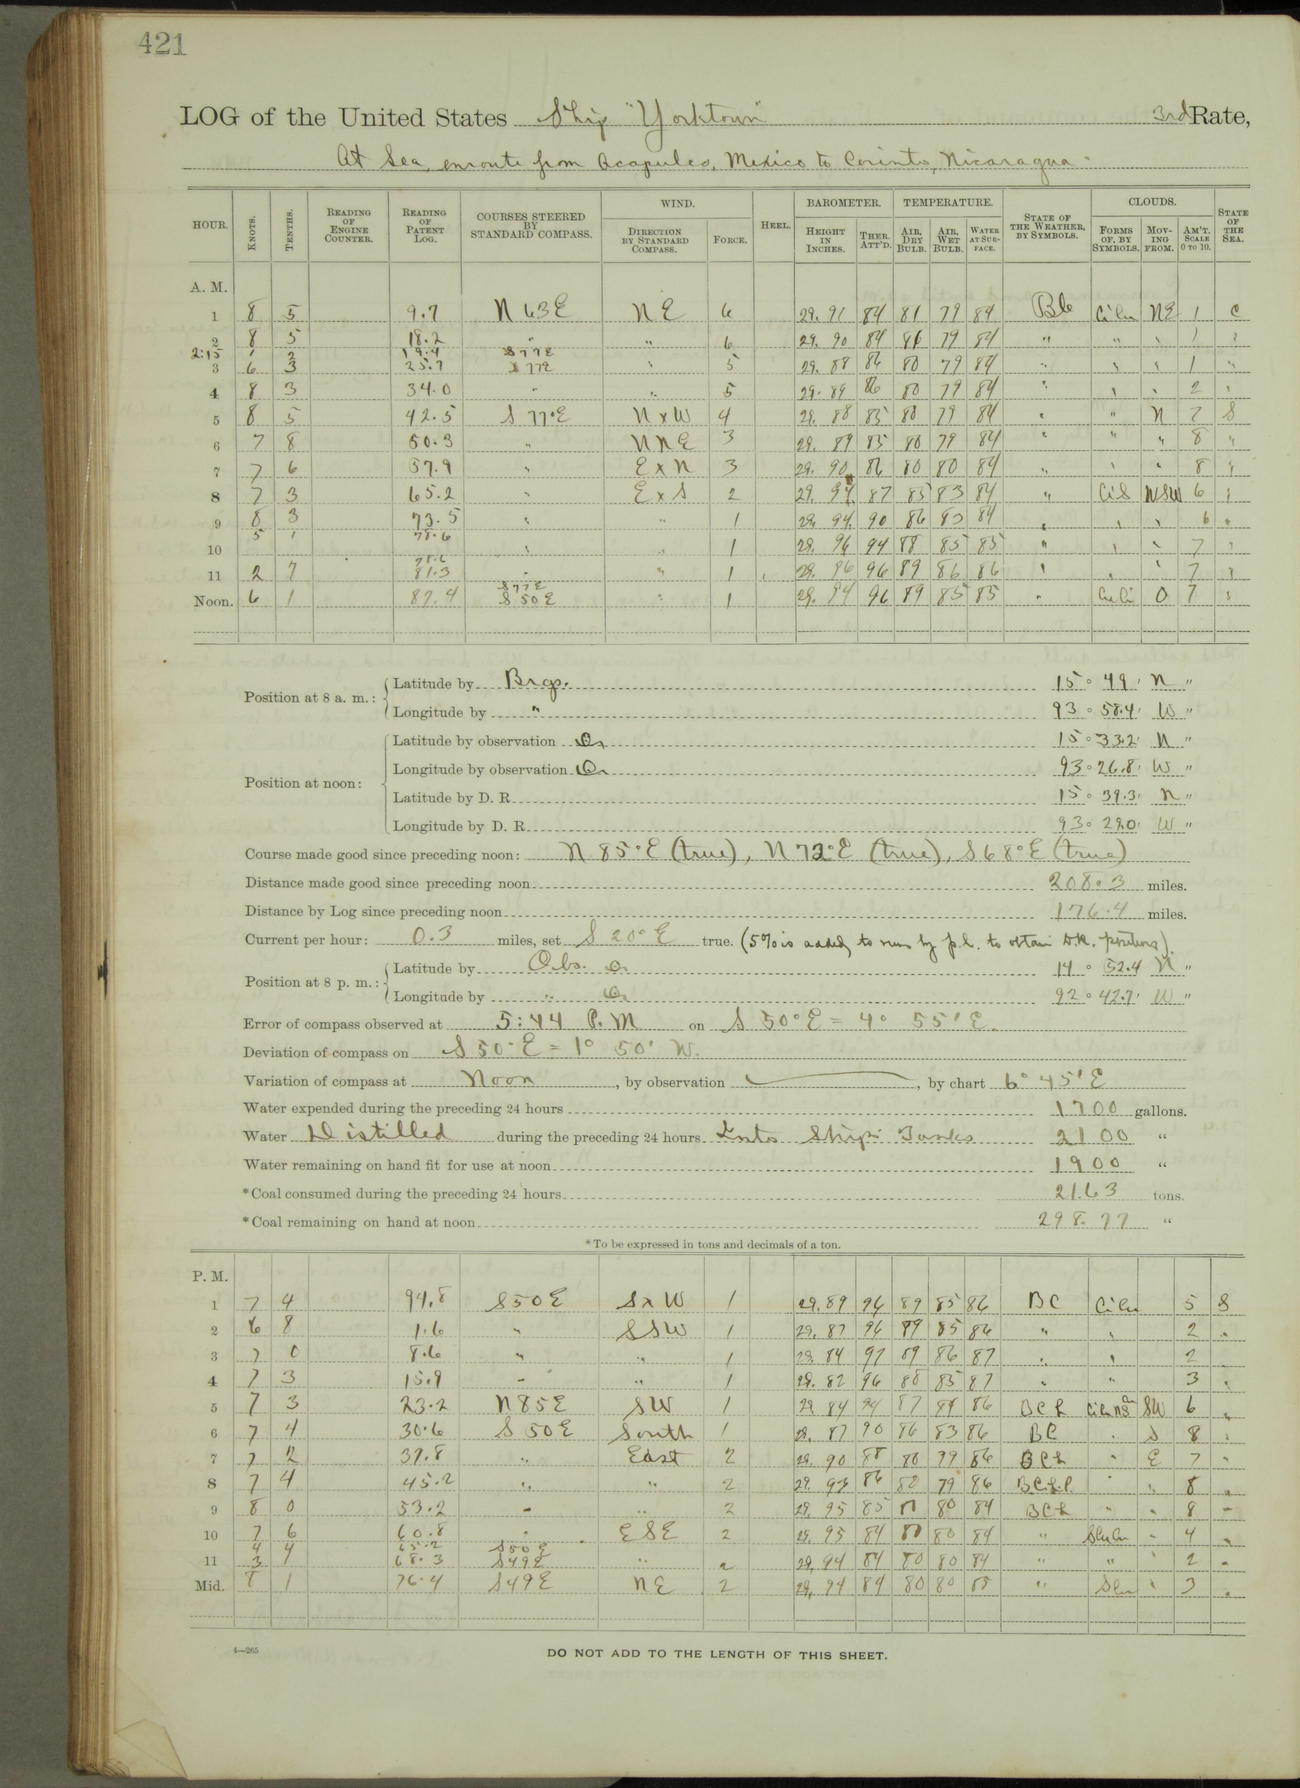 421
LOG of the United States Ship "Yorktown" 3rd Rate,
At Sea, enroute from Acapulco, Mexico to Corinto, Nicaragua.
HOUR. KNOTS. TENTHS. READING OF ENGINE COUNTER. READING OF PATENT LOG. COURSES STEERED BY STANDARD COMPASS. WIND. DIRECTION BY STANDARD COMPASS. FORCE. HEEL. BAROMETER. HEIGHT IN INCHES. THER. ATT'D. TEMPERATURE. AIR, DRY BULB. AIR, WET BULB. WATER AT SURFACE. STATE OF THE WEATHER, BY SYMBOLS. CLOUDS. FORMS OF, BY SYMBOLS. MOVING FROM. AM'T. SCALE 0 TO 10. STATE OF THE SEA.
A. M.
1 8 5 9.7 N 63 E N E 6 29. 91 84 81 79 84 Bb NE 1 C
2 8 5 18.2 " " 6 29. 90 84 81 79 84 " " " 1 "
2:15 1 2 19.4 S 77 E
3 6 3 25.7 S 77 E " 5 29. 88 86 80 79 84 " " " 1 "
4 8 3 34.0 " " 5 29. 89 86 80 79 84 " " " 2 "
5 8 5 42.5 S 77° E N x W 4 29. 88 85 80 79 84 " " N 7 S
6 7 8 50.3 " N N E 3 29. 89 85 80 79 84 " " " 8 "
7 7 6 57.9 " E x N 3 29. 90 86 80 80 84 " " " 8 "
8 7 3 65.2 " E x S 2 29. 94 87 85 83 84 " Ci S WSW 6 "
9 8 3 73.5 " " 1 29. 94 90 86 83 84 " " " 6 "
5 1 78.6
10 " " 1 29. 96 94 88 85 85 " " " 7 "
78.6
11 2 7 81.3 " " 1 29. 96 96 89 86 86 " " " 7 "
S 77 E
Noon. 6 1 87.4 S 50 E " 1 29. 94 96 89 85 85 " CuCi 0 7 "
Position at 8 a. m.: Latitude by Brgs. 15° 49' N "
Longitude by " 93° 58.4' W "
Position at noon: Latitude by observation 15° 33.2' N "
Longitude by observation 93° 26.8' W "
Latitude by D. R. 15° 39.3' N "
Longitude by D. R. 93° 28.0' W "
Course made good since preceding noon: N 85° E (true), N 72° E (true), S 68° E (true)
Distance made good since preceding noon 208.3 miles.
Distance by Log since preceding noon 176.4 miles.
Current per hour: 0.3 miles, set S 20° E true. (5% is added to run by p.l. to obtain D.R. positions).
Position at 8 p. m.: Latitude by Obs. 14° 52.4 N "
Longitude by " 92° 42.7' W "
Error of compass observed at 5:44 P. M on S 50° E = 4° 55' E.
Deviation of compass on S 50° E = 1° 50' W.
Variation of compass at Noon, by observation, by chart 6° 45' E
Water expended during the preceding 24 hours 1700 gallons.
Water Distilled during the preceding 24 hours Into Ships Tanks 2100 "
Water remaining on hand fit for use at noon 1900 "
*Coal consumed during the preceding 24 hours 21.63 tons.
*Coal remaining on hand at noon 298.77 "
*To be expressed in tons and decimals of a ton.
P. M.
1 7 4 94.8 S 50 E S x W 1 29. 89 96 89 85 86 BC CiCu 5 S
2 6 8 1.6 " SSW 1 29. 87 96 89 85 86 " " 2 "
3 7 0 8.6 " " 1 29. 84 97 89 86 87 " " 2
4 7 3 15.9 " " 1 29. 82 96 88 85 87 " " 3 "
5 7 3 23.2 N 85 E SW 1 29. 84 94 87 84 86 SW 6 "
6 7 4 30.6 S 50 E South 1 29. 87 90 86 83 86 BC " S 8 "
7 7 2 37.8 " East 2 29. 90 88 80 79 86 " E 7 "
8 7 4 45.2 " " 2 29. 93 86 80 79 86 " " 8 "
9 8 0 53.2 " " 2 29. 95 85 80 80 84 " " 8 "
10 7 6 60.8 " ESE 2 29. 95 84 80 80 84 " " 4 "
4 4 65.2 S 50 E
11 3 1 68.3 S 49 E " 2 29. 94 84 80 80 84 " " " 2 "
Mid. 8 1 76.4 S 49 E NE 2 29. 94 84 80 80 85 " " 3 "
4—265
DO NOT ADD TO THE LENGTH OF THIS SHEET.